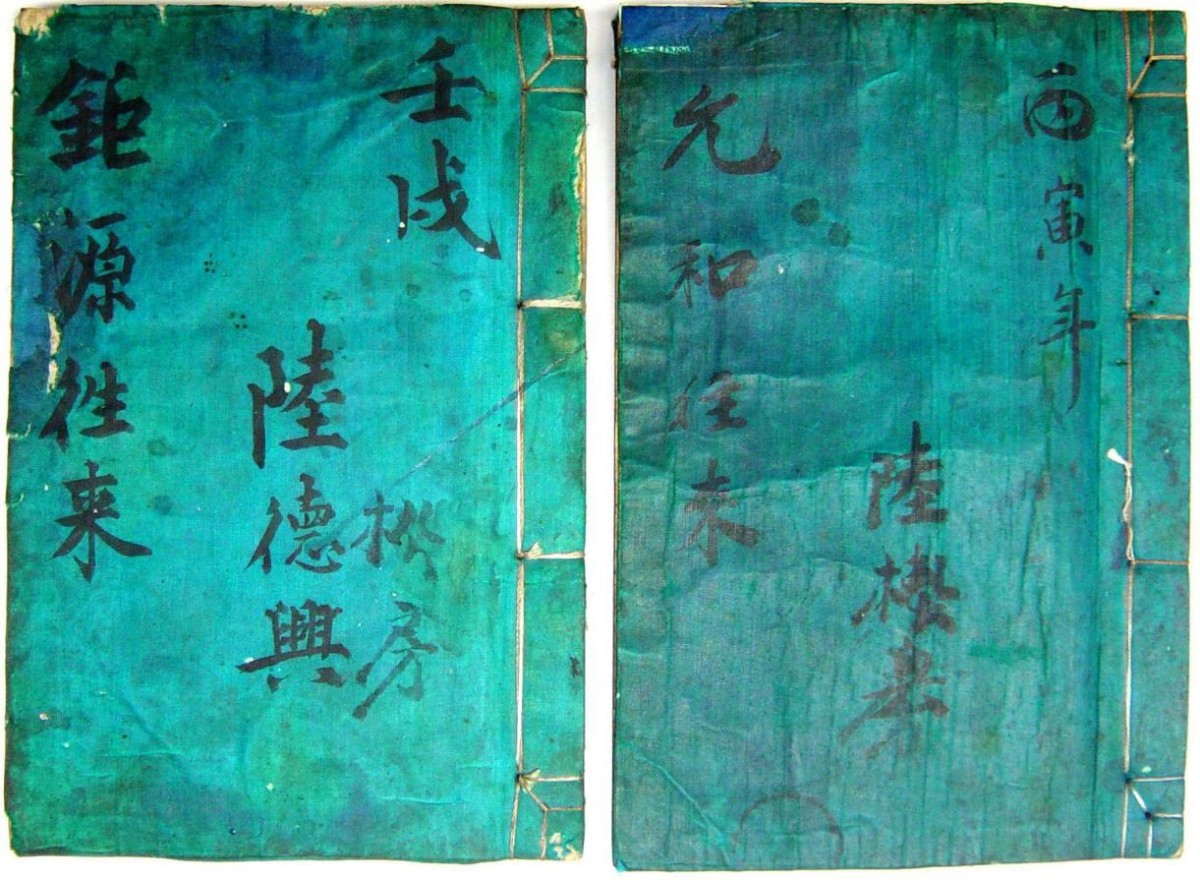 壬戌
松房
陸德興
鉅源往来
丙寅年
陸
允和往来